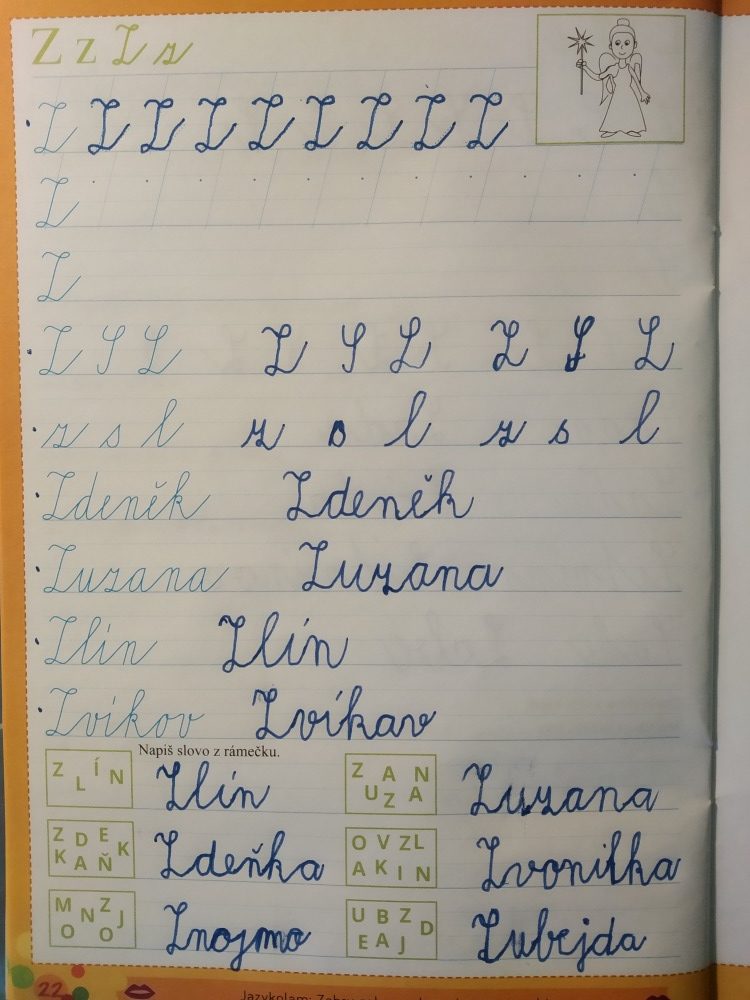 Z z Z z
Z Z Z Z Z Z Z Z Z
Z
Z
Z S L Z S L Z S L
z s l z s l z s l
Zdeněk Zdeněk
Zuzana Zuzana
Zlín Zlín
Zvíkov Zvíkav
Napiš slovo z rámečku.
Z L Í N Zlín Z A N U Z A Zuzana
Z D E K K A Ň Zdeňka O V Z L A K I N Zvonilka
M N Z J O O Znojmo U B Z D E A J Zubejda
22 Jazykolam: